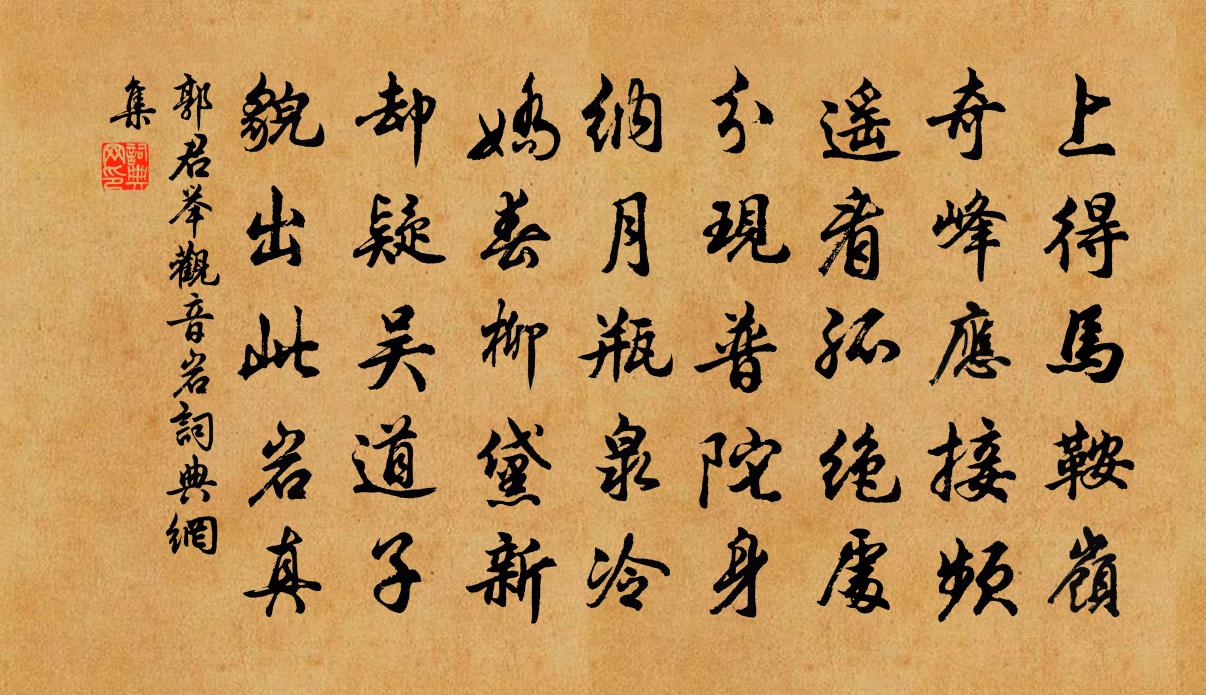 上得馬鞍嶺
奇峰應接頻
遥看孤绝處
分現普陀身
纳月瓶泉冷
嬌春柳黛新
却疑吴道子
貌出此岩真
郭君举觀音岩詞典網
集
詞典
网印